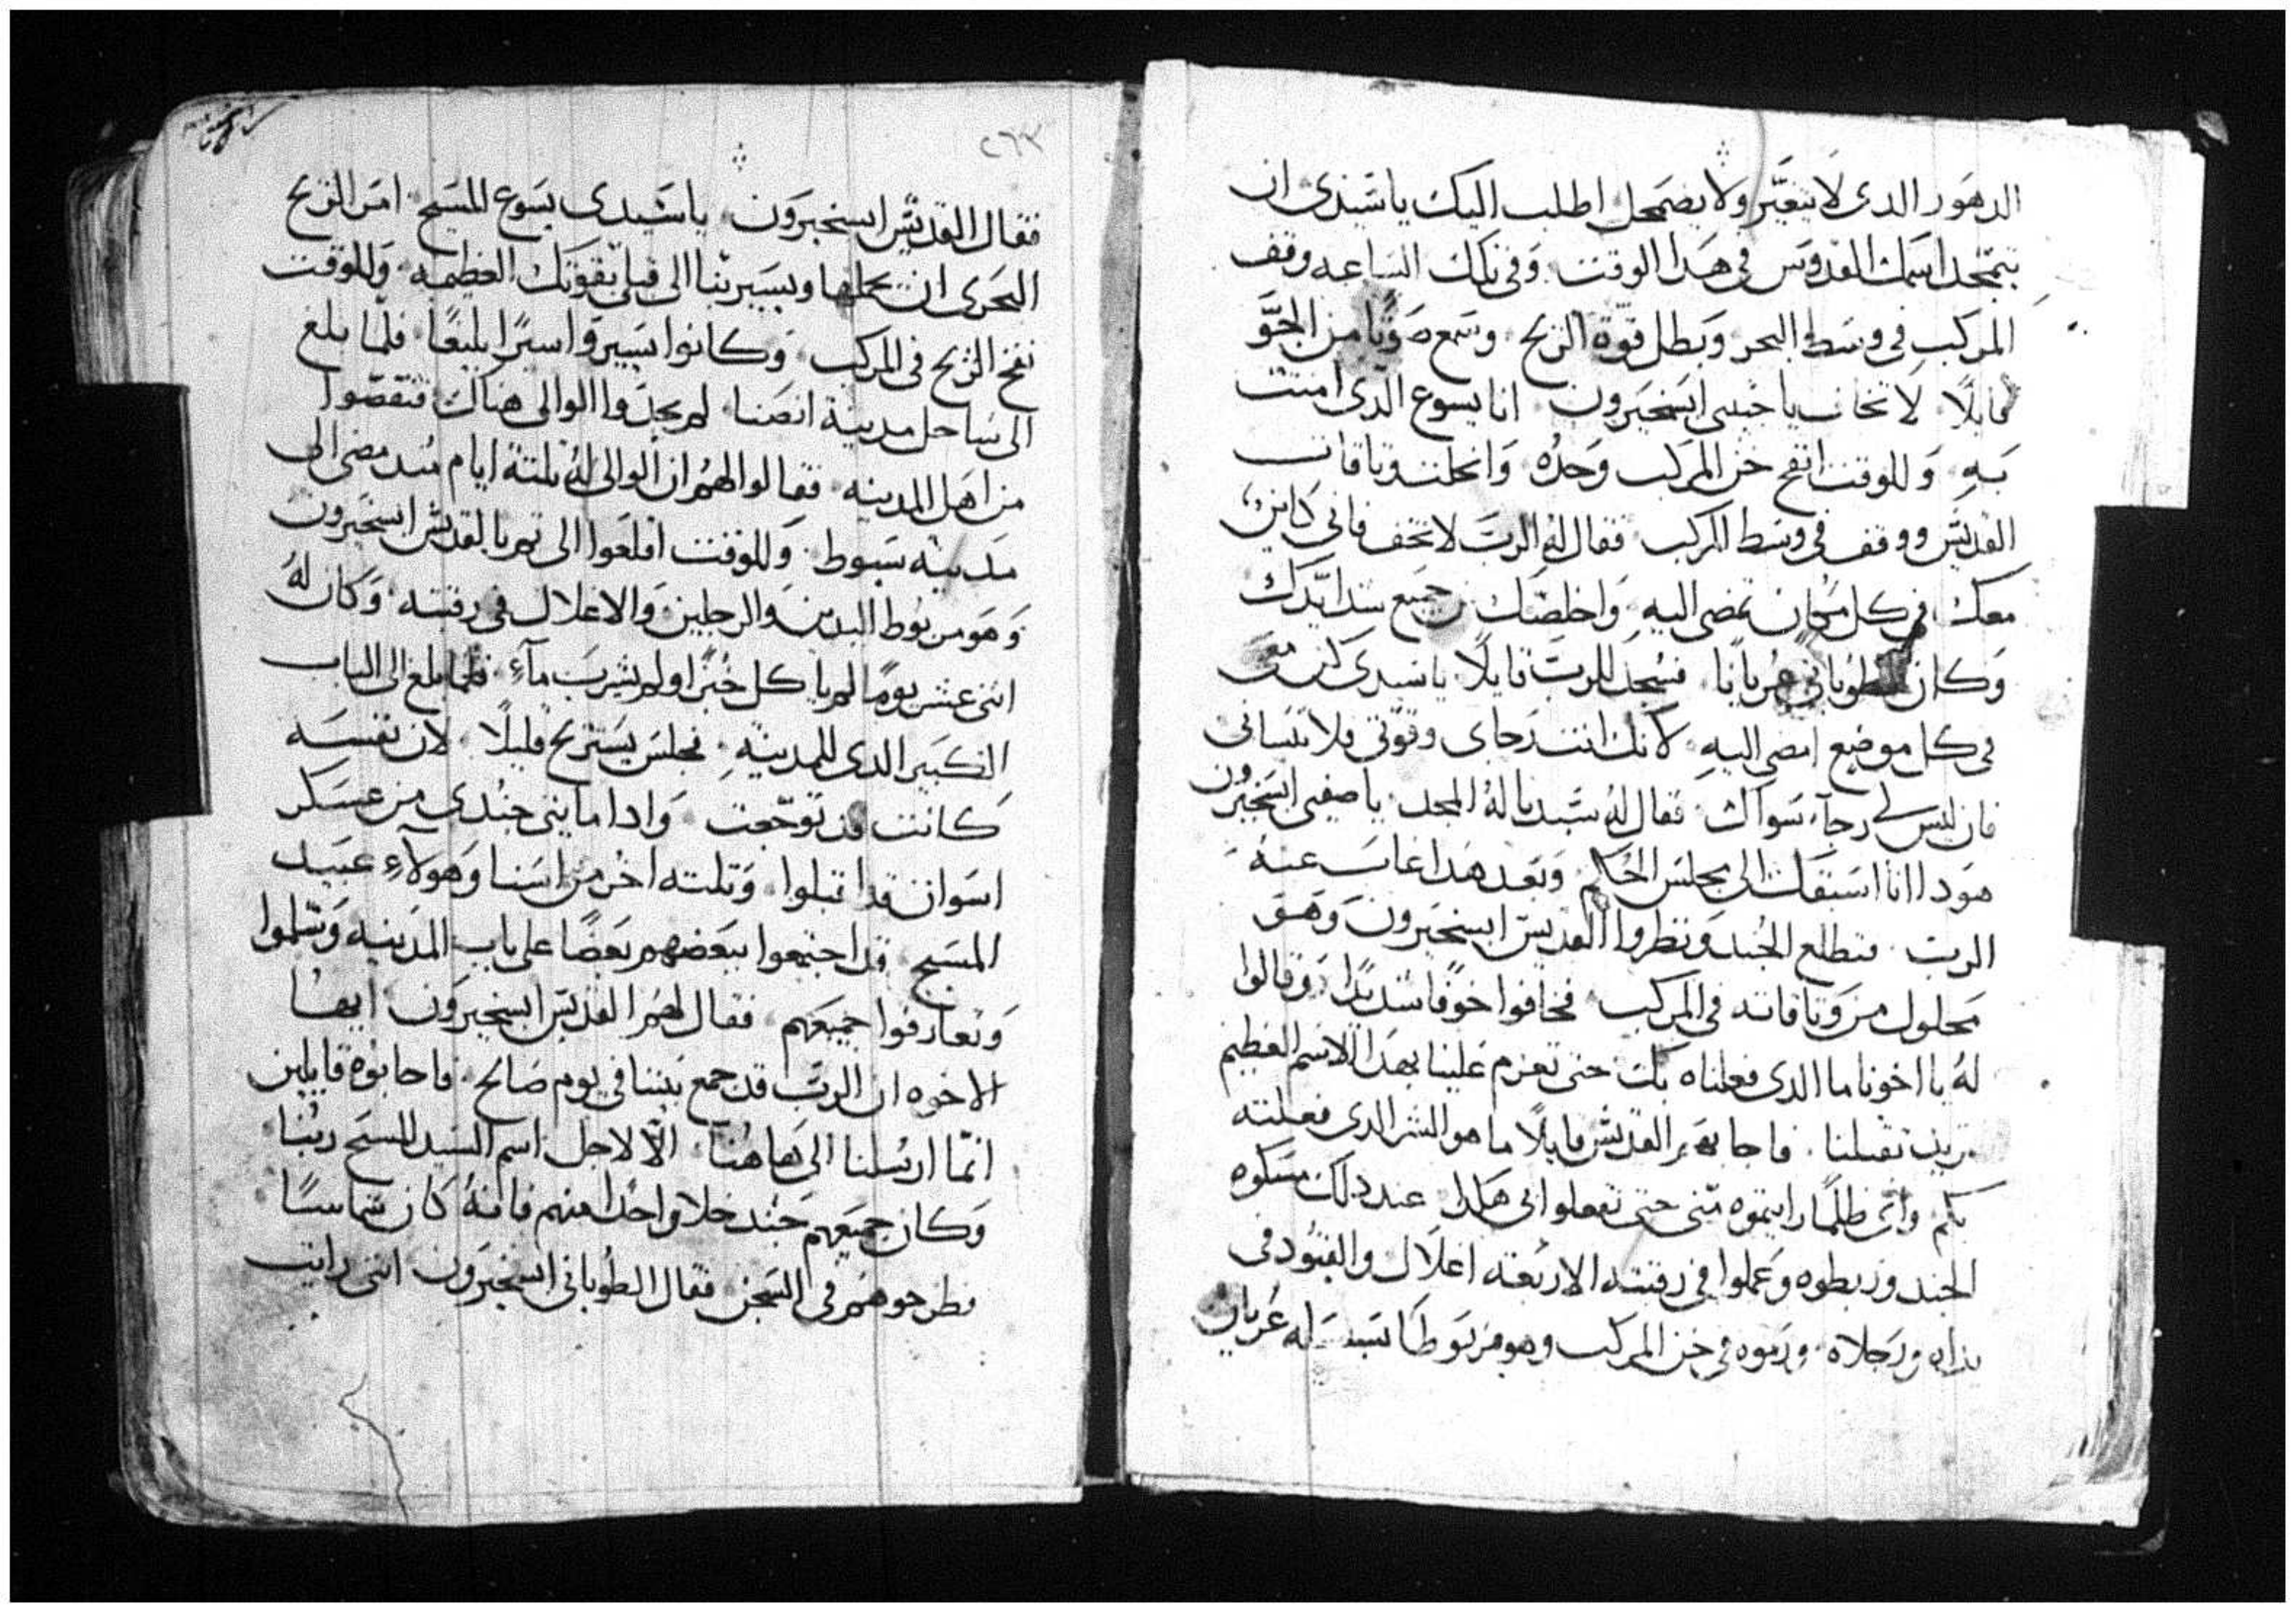 الدهور الدى لا يتغيّر ولا يضمحل اطلب اليك يا سيدى ان
يتمجد اسمك القدوس فى هدا الوقت وفى تلك الساعه وقف
المركب فى وسط البحر وبطل قوة الريح وسمع صوتًا من الجوّ
قايلًا لا تخاف يا حبيبى ابسخيرون انا يسوع الدى امنت
به وللوقت انفتح خن المركب وحدُه وانحلت وثاقات
القديس ووقف فى وسط المركب فقال له الربّ لا تخف فانى كاين
معك فى كل مكان تمضى اليه واخلصك جميع شدايدك
وكان الطوبانى عريانًا فسجد للرب قايلًا يا سيدى كن معى
فى كل موضع امضى اليه لانك انت رجاى وقوّتى فلا تنسانى
فان ليس لى رجآء سواك فقال له سيدنا له المجد يا صفيى ابسخيرون
هودا انا اسبقك الى مجلس الحكم وبعد هدا غاب عنه
الرب فتطلع الجند ونظروا القديس ابسخيرون وهو
محلول من وثاقاته فى المركب فخافوا خوفًا شديدًا وقالوا
له يا اخونا ما الدى فعلناه بك حتى تعزم علينا بهدا الاسم العظيم
تريد تقتلنا فاجابهم القديس قايلًا ما هو الشر الدى فعلته
بكم واى ظلمًا رايتموه منى حتى تفعلوا بى هكدا عند دلك مسكوه
الجند وربطوه وعملوا فى رقبته الاربعة اغلال والقيود فى
يداه ورجلاه ورموه فى خن المركب وهو مربوطا عريان
٢٦٣
فقال القديس ابسخيرون يا سيدى يسوع المسيح امر الريح
البحرى ان يحملها ويسير بنا الى قبلى بقوتك العظيمه وللوقت
نفخ الريح فى المركب وكانوا يسيروا سيرًا بليغًا فلما بلغ
الى ساحل مدينة انصنا لم يجدوا الوالى هناك فتقصّوا
من اهل المدينه فقالوا لهم ان الوالى له تلتة ايام مند مضى الى
مدينه سيوط وللوقت اقلعوا الى تم بالقديس ابسخيرون
وهو مربوط اليدين والرجلين والاغلال فى رقبته وكان لهُ
اتنى عشر يومًا لم ياكل خبزا ولم يشرب مآء فلما بلغ الى الباب
الكبير الدى للمدينة فجلس يستريح قليلًا لان نفسه
كانت قد توجّعت وادا مايتى جندى من عسكر
اسوان قد اقبلوا وتلته اخر من اسنا وهولآء عبيد
المسيح قد اجتمعوا ببعضهم بعضًا على باب المدينه وسّلموا
وتعارفوا جميعهم فقال لهم القديس ابسخيرون ايها
الاخوه ان الربّ قد جمع بيننا فى يوم صالح فاجابوه قايلين
انمّا ارسلنا الى هاهُنا الّا لاجل اسم السيد المسيح ربنا
وكان جميعهم جند خلا واحدا منهم فانهُ كان شماسًا
فطرحوهم فى السجن فقال الطوبانى ابسخيرون اننى رايت